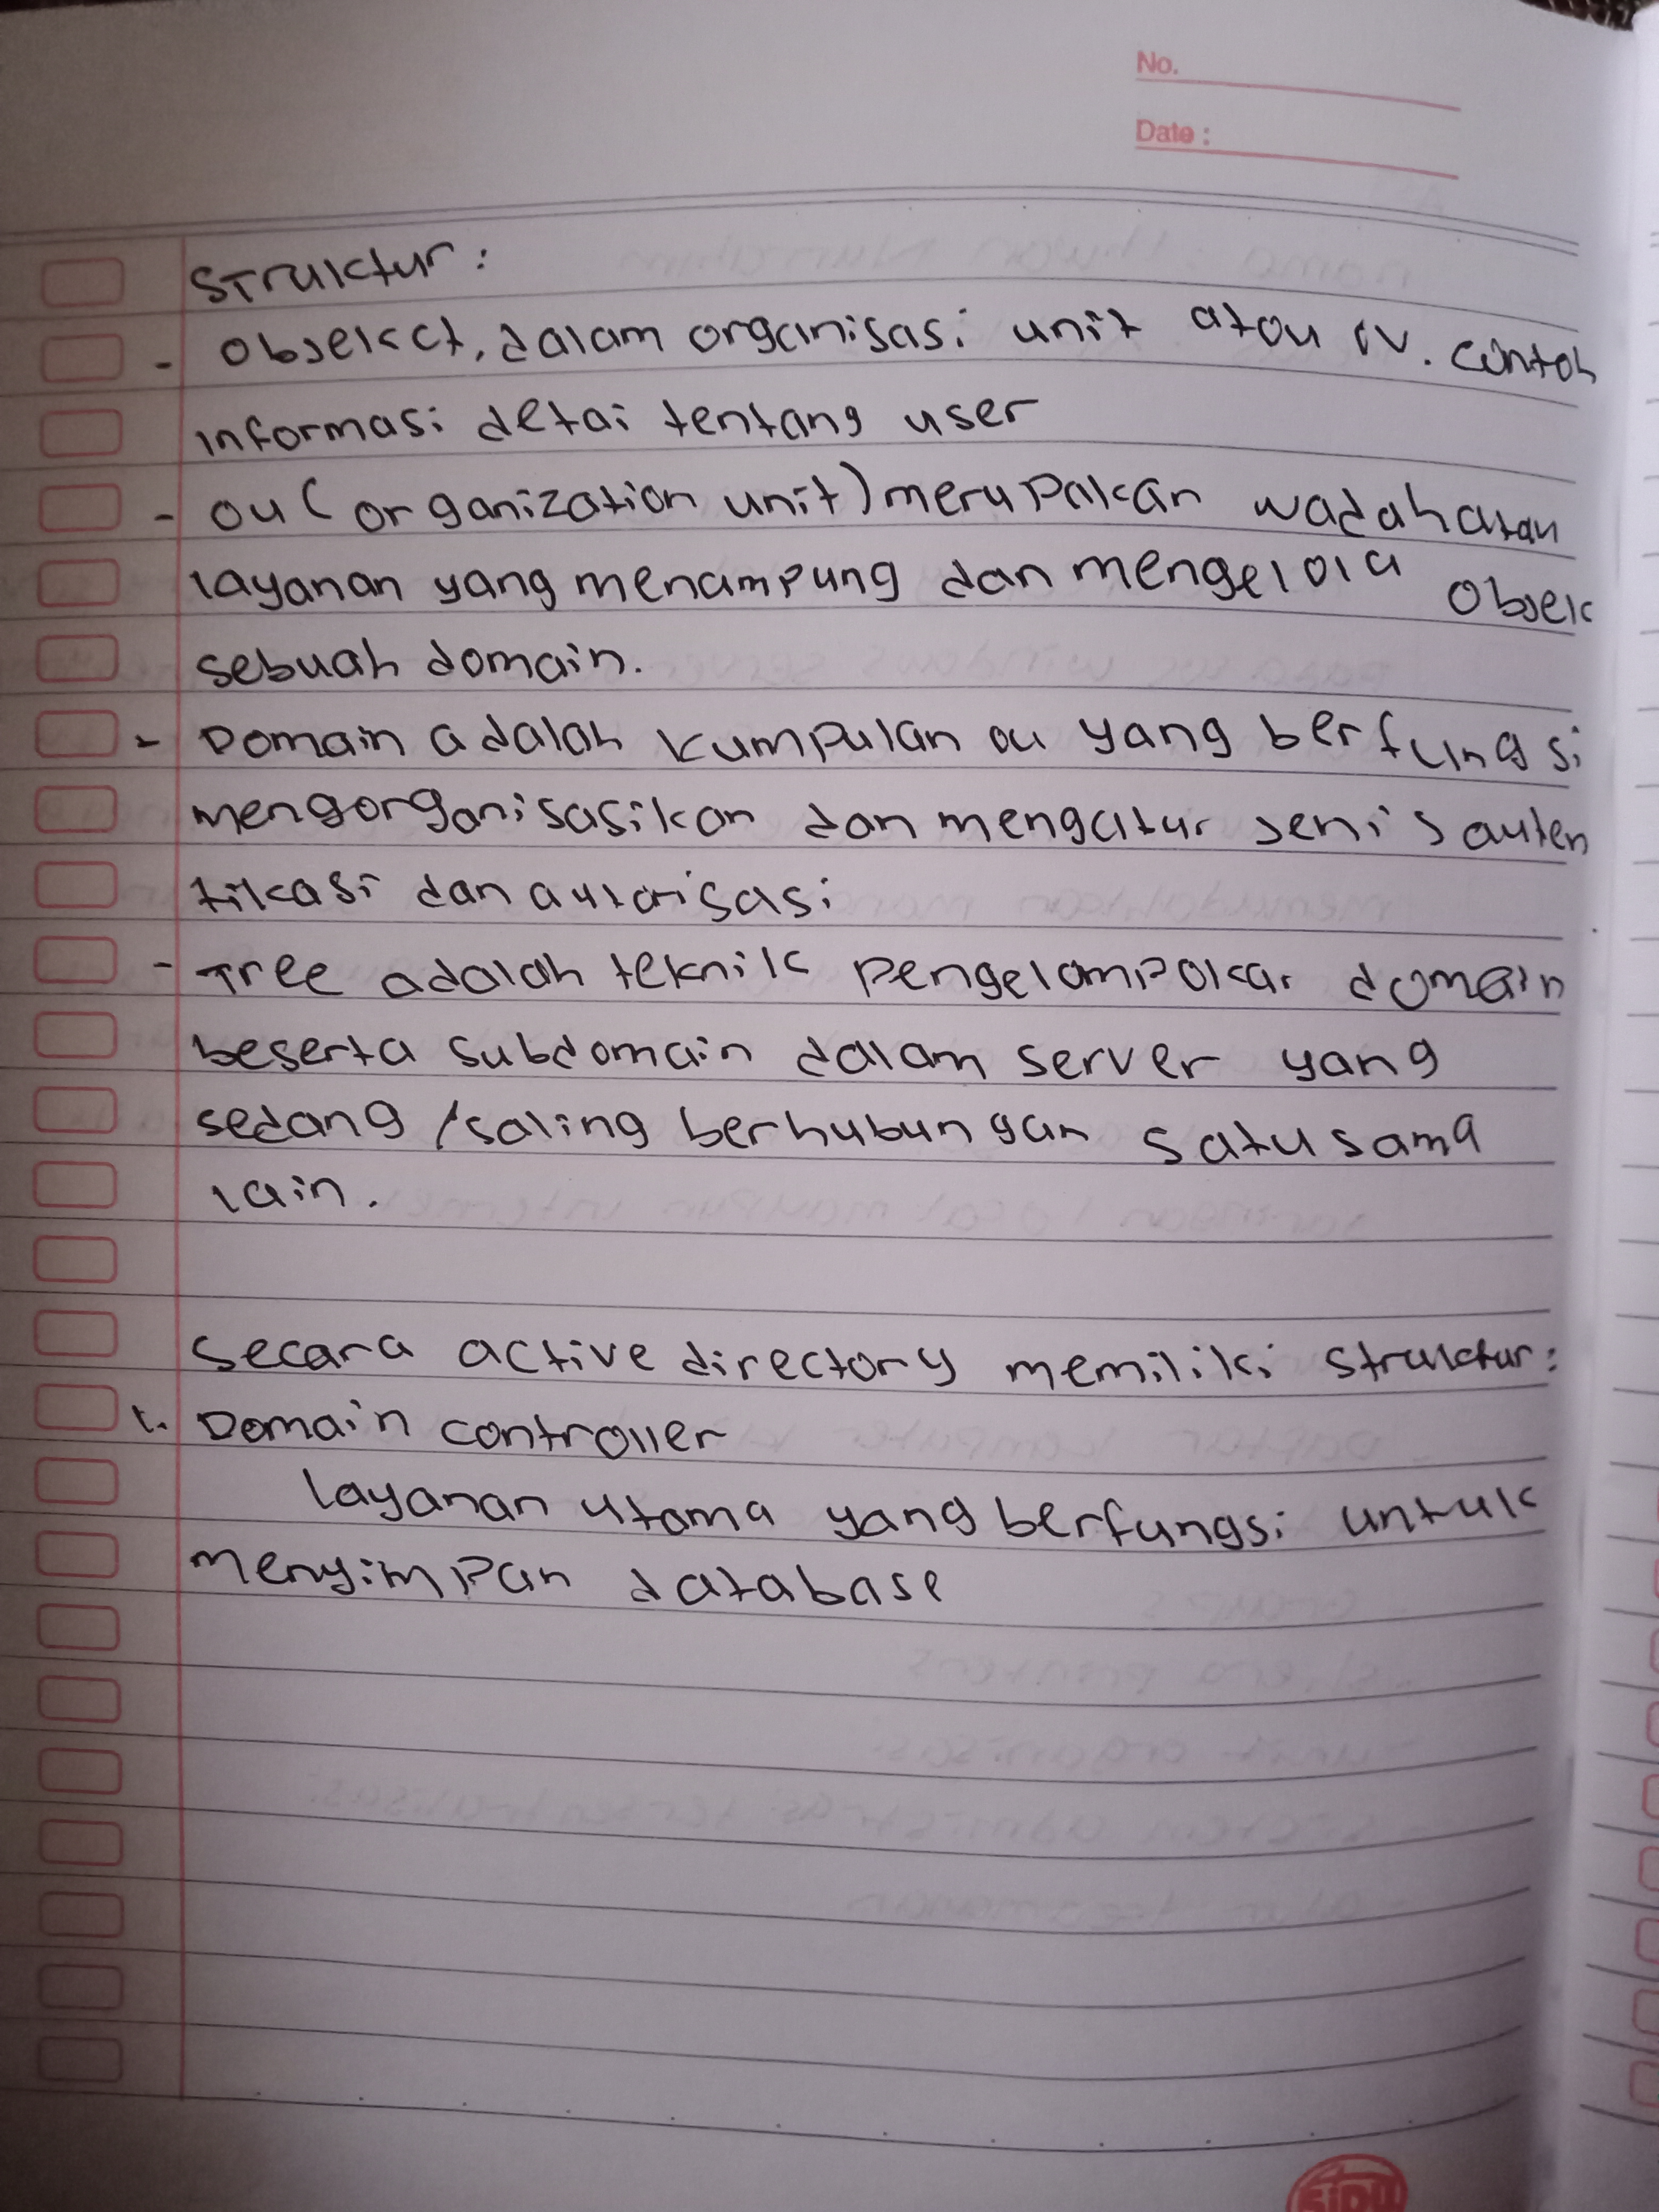 No.
Date :
Struktur :
- Objekct, dalam organisasi unit atau OU. contoh
informasi detai tentang user
- ou (organization unit) merupakan wadah atau
layanan yang menampung dan mengelola objek
sebuah domain.
- Domain adalah kumpulan ou yang berfungsi
mengorganisasikan dan mengatur jenis auten
tikasi dan autorisasi
- Tree adalah teknik pengelompokar domain
beserta subdomain dalam server yang
sedang /saling berhubungan satu sama
lain.
Secara active directory memiliki struktur :
1. Domain controller
layanan utama yang berfungsi untuk
menyimpan database
SiDU